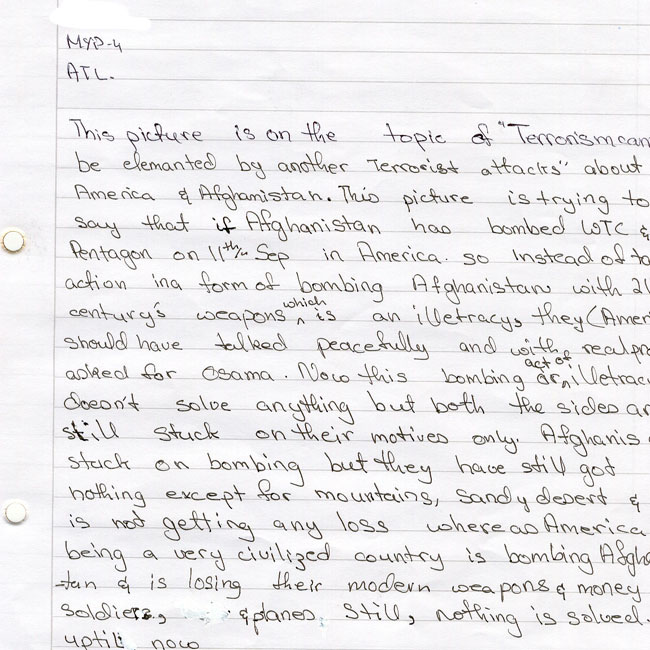 MYP-4
ATL.
This picture is on the topic of "Terrorism can
be elemanted by another Terrorist attacks" about
America & Afghanistan. This picture is trying to
say that if Afghanistan has bombed WTC &
Pentagon on 11th Sep in America. so instead of ta
action in a form of bombing Afghanistan with 21
century's weapons which is an illetracy, they (Ameri
should have talked peacefully and with real pr
asked for Osama. Now this bombing or act of illetrac
doesn't solve anything but both the sides ar
still stuck on their motives only. Afghanis
stuck on bombing but they have still got
nothing except for mountains, sandy desert &
is not getting any loss whereas America
being a very civilized country is bombing Afgha
-tan & is losing their modern weapons & money
soldiers, & planes. Still, nothing is solved.
uptil now